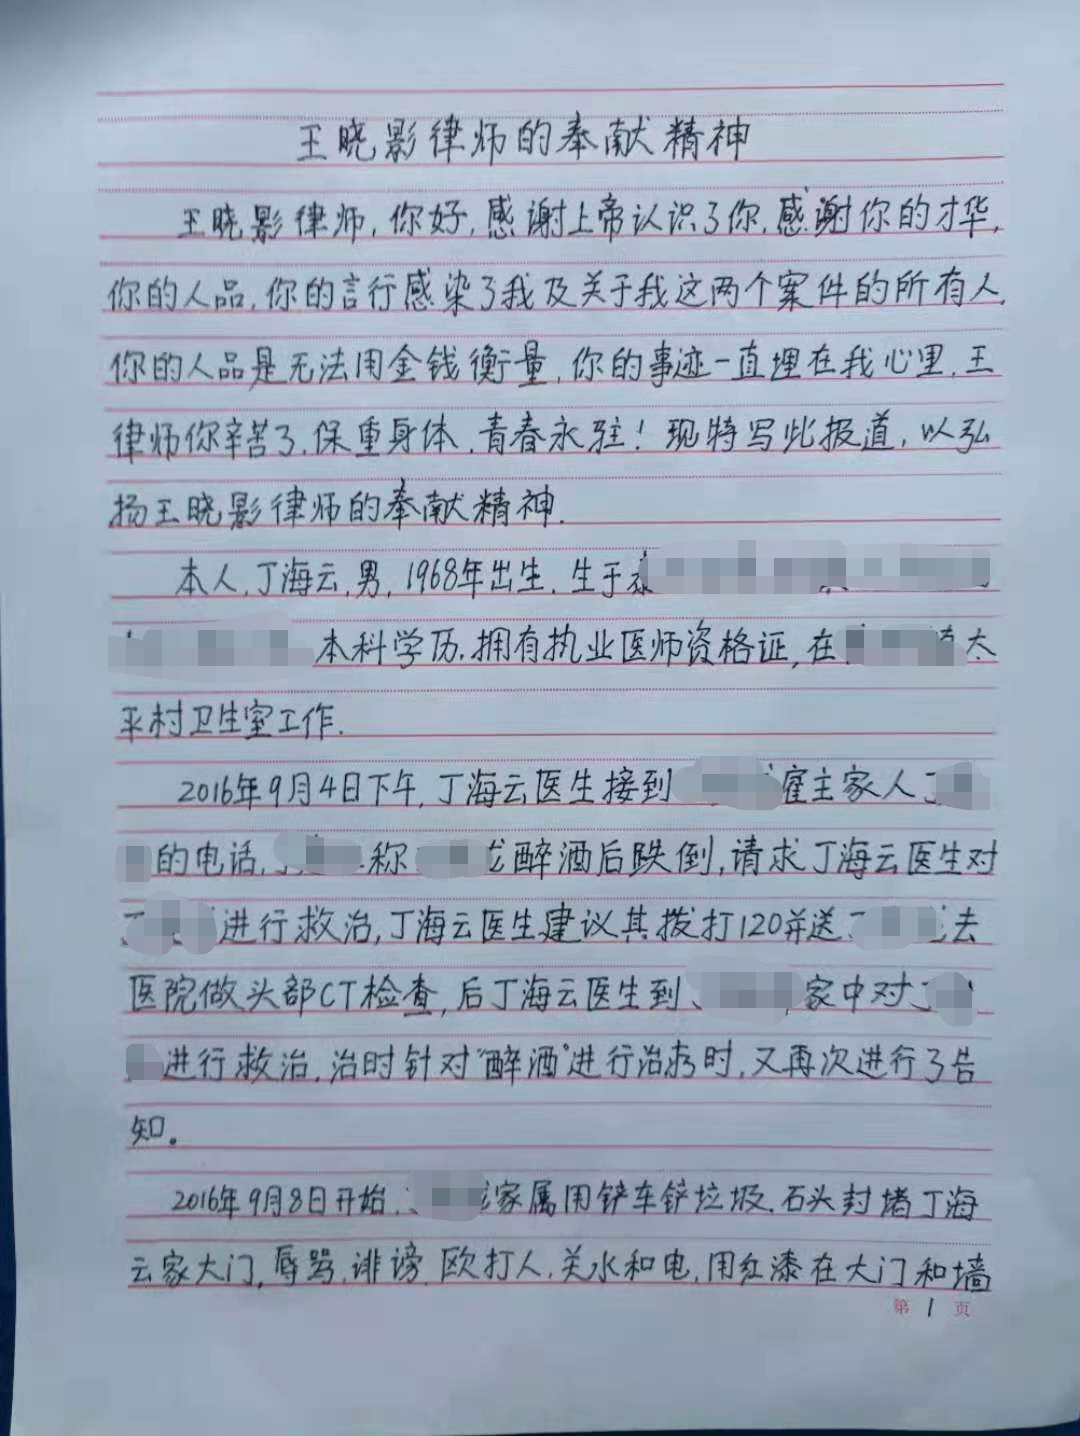 王晓影律师的奉献精神
王晓影律师,你好,感谢上帝认识了你,感谢你的才华,
你的人品,你的言行感染了我及关于我这两个案件的所有人,
你的人品是无法用金钱衡量,你的事迹一直埋在我心里,王
律师你辛苦了,保重身体,青春永驻!现特写此报道,以弘
扬王晓影律师的奉献精神.
本人,丁海云,男,1968年出生,生于泰
本科学历.拥有执业医师资格证,在 镇太
平村卫生室工作.
2016年9月4日下午,丁海云医生接到 雇主家人丁
的电话, 称 龙醉酒后跌倒,请求丁海云医生对
丁 进行救治,丁海云医生建议其拨打120并送 去
医院做头部CT检查,后丁海云医生到 家中对丁
进行救治,治时针对“醉酒”进行治疗时,又再次进行了告
知。
2016年9月8日开始, 龙家属用铲车铲垃圾.石头封堵丁海
云家大门,辱骂,诽谤.欧打人,关水和电,用红漆在大门和墙
第1页